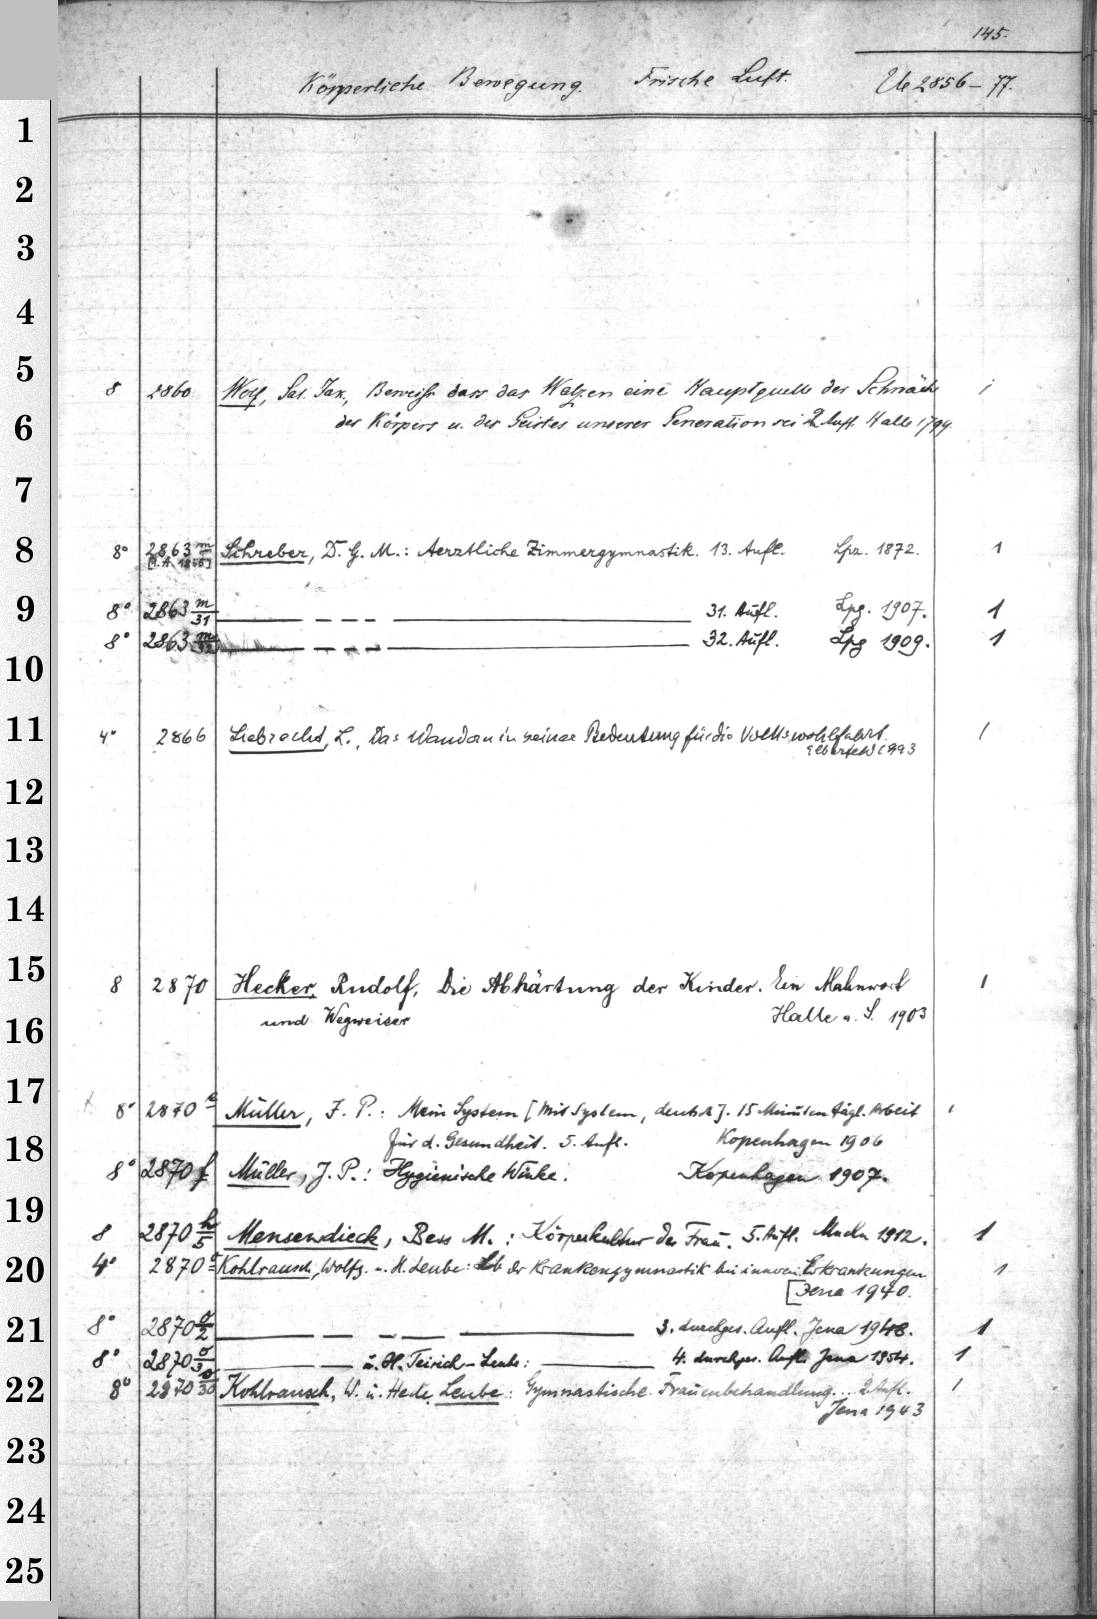 145.
Körperliche Bewegung. Frische Luft. Ue 2856–77.
1
2
3
4
5
8 2860 Wolf, Sal. Jak., Beweiss dass das Walzen eine Hauptquelle der Schwäche 1
6
des Körpers u. des Geistes unserer Generation sei 2. Aufl. Halle 1799
7
8
8° 2863 m Schreber, D. G. M.: Aerztliche Zimmergymnastik. 13. Aufl. Lpz. 1872. 1
9
8° 2863 m/31 ——— — — — ——— 31. Aufl. Lpg. 1907. 1
8° 2863 m/32 ——— — — — ——— 32. Aufl. Lpg 1909. 1
10
11
4° 2866 Liebrecht, L., Das Wandern in seiner Bedeutung für die Volkswohlfahrt. 1
Elberfeld 1893
12
13
14
15
8 2870 Hecker, Rudolf, Die Abhärtung der Kinder. Ein Mahnwort 1
16
und Wegweiser Halle a. S. 1903
17
8° 2870 e Müller, J. P.: Mein System [Mit System, deutsch]. 15 Minuten tägl. Arbeit 1
18
für d. Gesundheit. 5. Aufl. Kopenhagen 1906
8° 2870 f Müller, J. P.: Hygienische Winke. Kopenhagen 1907.
19
8 2870 h/5 Mensendieck, Bess M.: Körperkultur der Frau. 5. Aufl. Mchn 1912. 1
20
4° 2870 o Kohlrausch, Wolfg. u. H. Leube: Lb der Krankengymnastik bei inneren Erkrankungen 1
[Jena 1940.
21
8° 2870 o/2 ——— — — — ——— 3. durchges. Aufl. Jena 1948. 1
8° 2870 o/3 ——— — u. H. Teirich-Leube: ——— 4. durchges. Aufl. Jena 1954. 1
22
8° 2870 o/30 Kohlrausch, W. u. Hede Leube: Gymnastische Frauenbehandlung... 2. Aufl. 1
Jena 1943
23
24
25